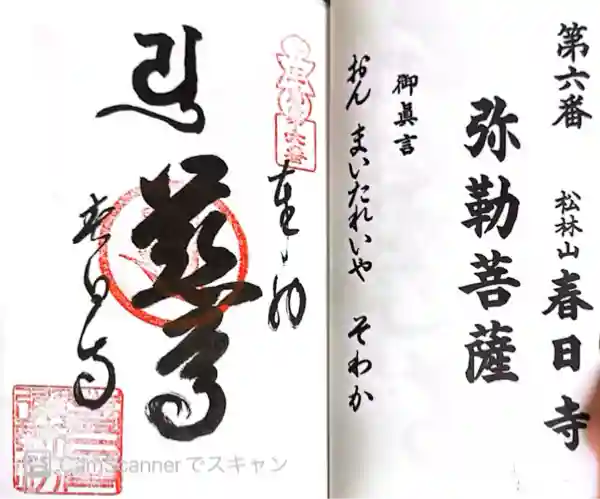 第六番
松林山 春日寺
弥勒菩薩
御真言
おん まいたれいや そわか
奉拝
慈尊
春日寺
六番
CamScannerでスキャン